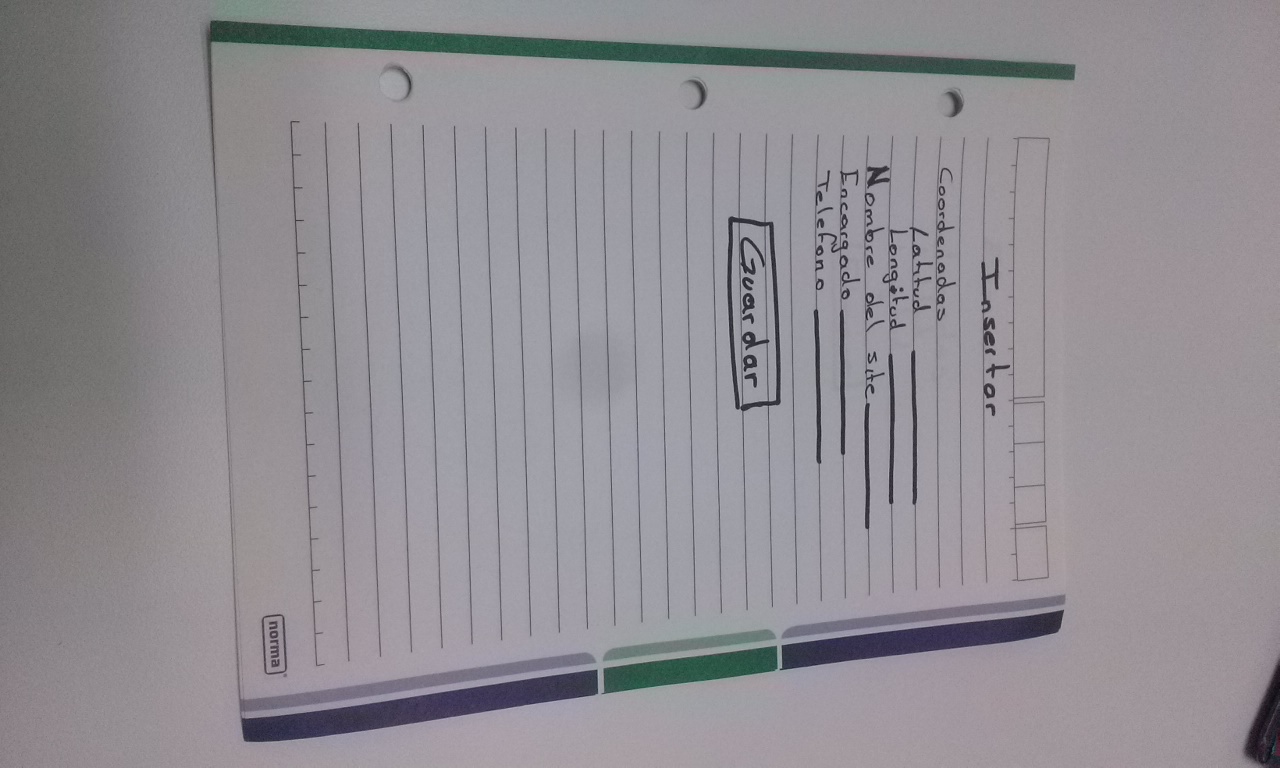 Insertar
Coordenadas
Latitud
Longitud
Nombre del site
Encargado
Telefono
Guardar
norma